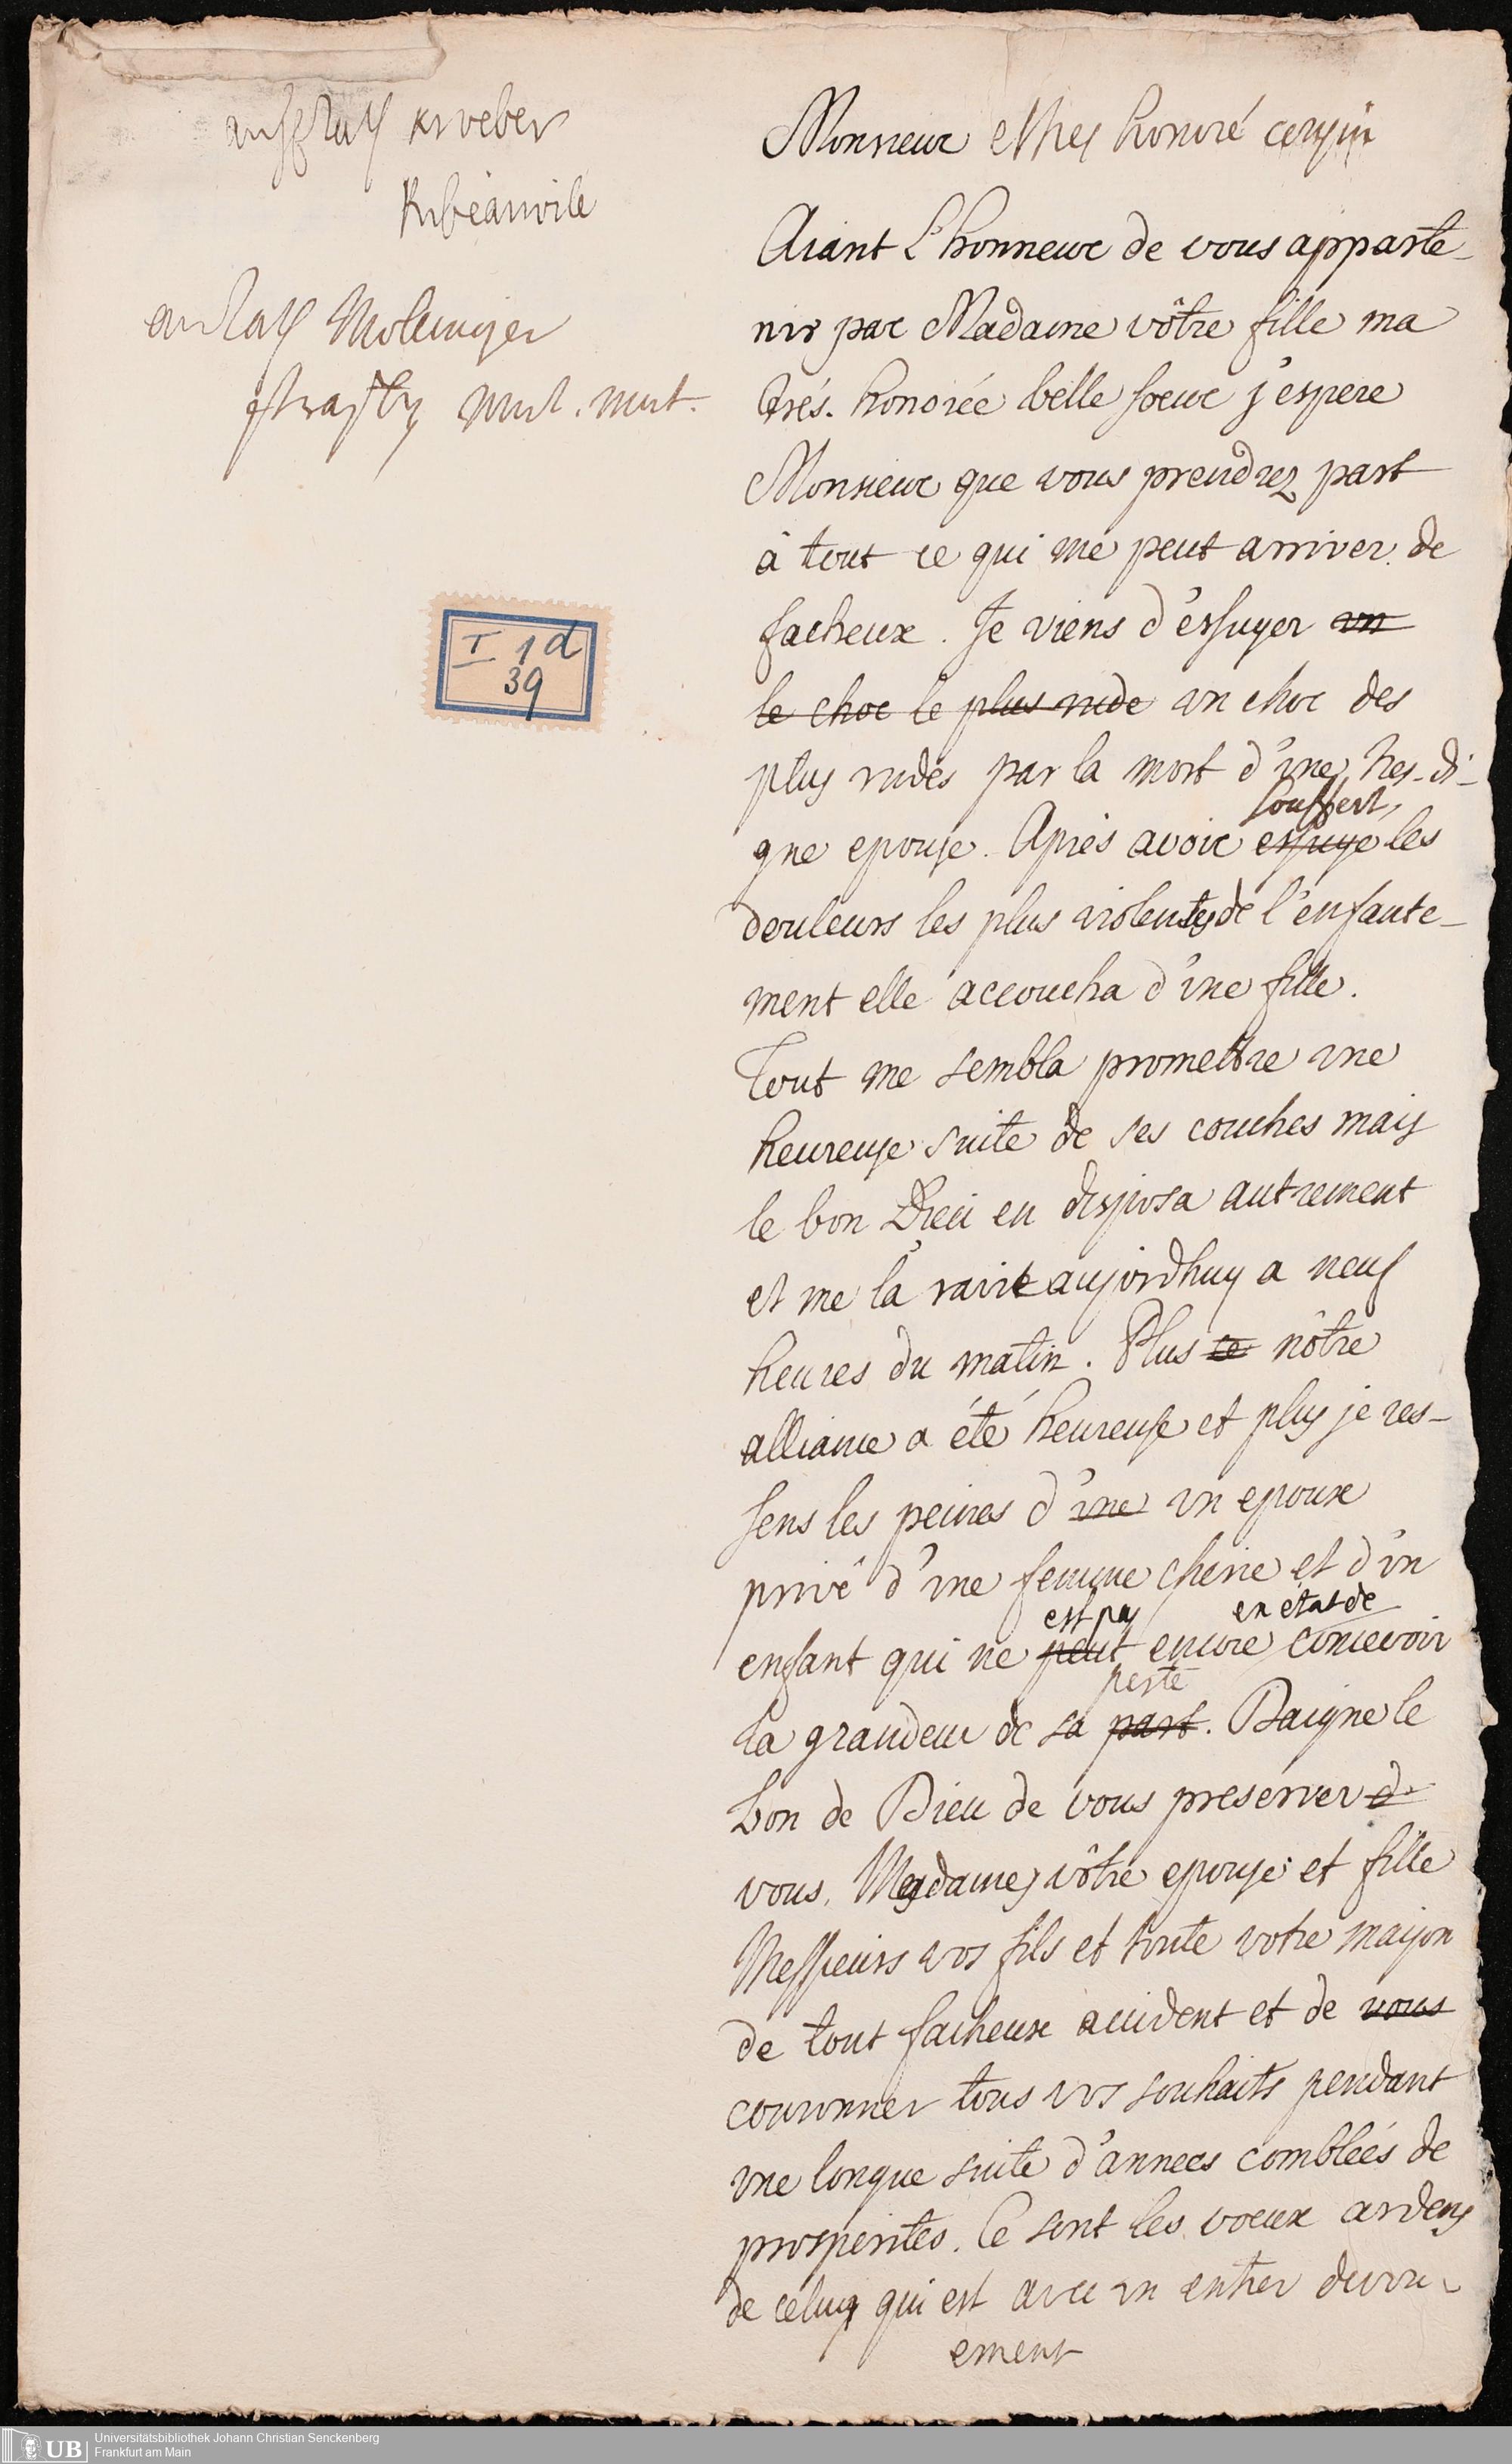 Kroeber
Ribeauvile
Mollinger
mut. mut.
I 1d
39
Monsieur et tres honoré cousin
Aiant l'honneur de vous apparte-
nir par Madame vôtre fille ma
trés-honorée belle soeur j'espere
Monsieur que vous prendrez part
à tout ce qui me peut arriver de
facheux. Je viens d'essuyer un
le choc le plus rude un choc des
plus rudes par la mort d'une tres-di-
souffert
gne epouse. Aprés avoir essuye les
douleurs les plus violentes de l'enfante-
ment elle accoucha d'une fille.
Tout me sembla promettre une
heureuse suite de ses couches mais
le bon Dieu en disposa autrement
et me la ravit aujordhuy a neuf
heures du matin. Plus ce nôtre
alliance a été heureuse et plus je res-
sens les peines d'une un epoux
privé d'une femme cherie et d'un
est pas en etat de
enfant qui ne peut encore concevoir
perte
la grandeur de sa part. Daigne le
bon de Dieu de vous preserver d
vous, Mesdames vôtre epouse et fille
Messieurs vos fils et toute votre maison
de tout facheux accident et de vous
couronner tous vos souhaits pendant
une longue suite d'annees combleés de
prosperites. Ce sont les voeux ardens
de celuy qui est avec un entier devou-
ement
UB
Universitätsbibliothek Johann Christian Senckenberg
Frankfurt am Main